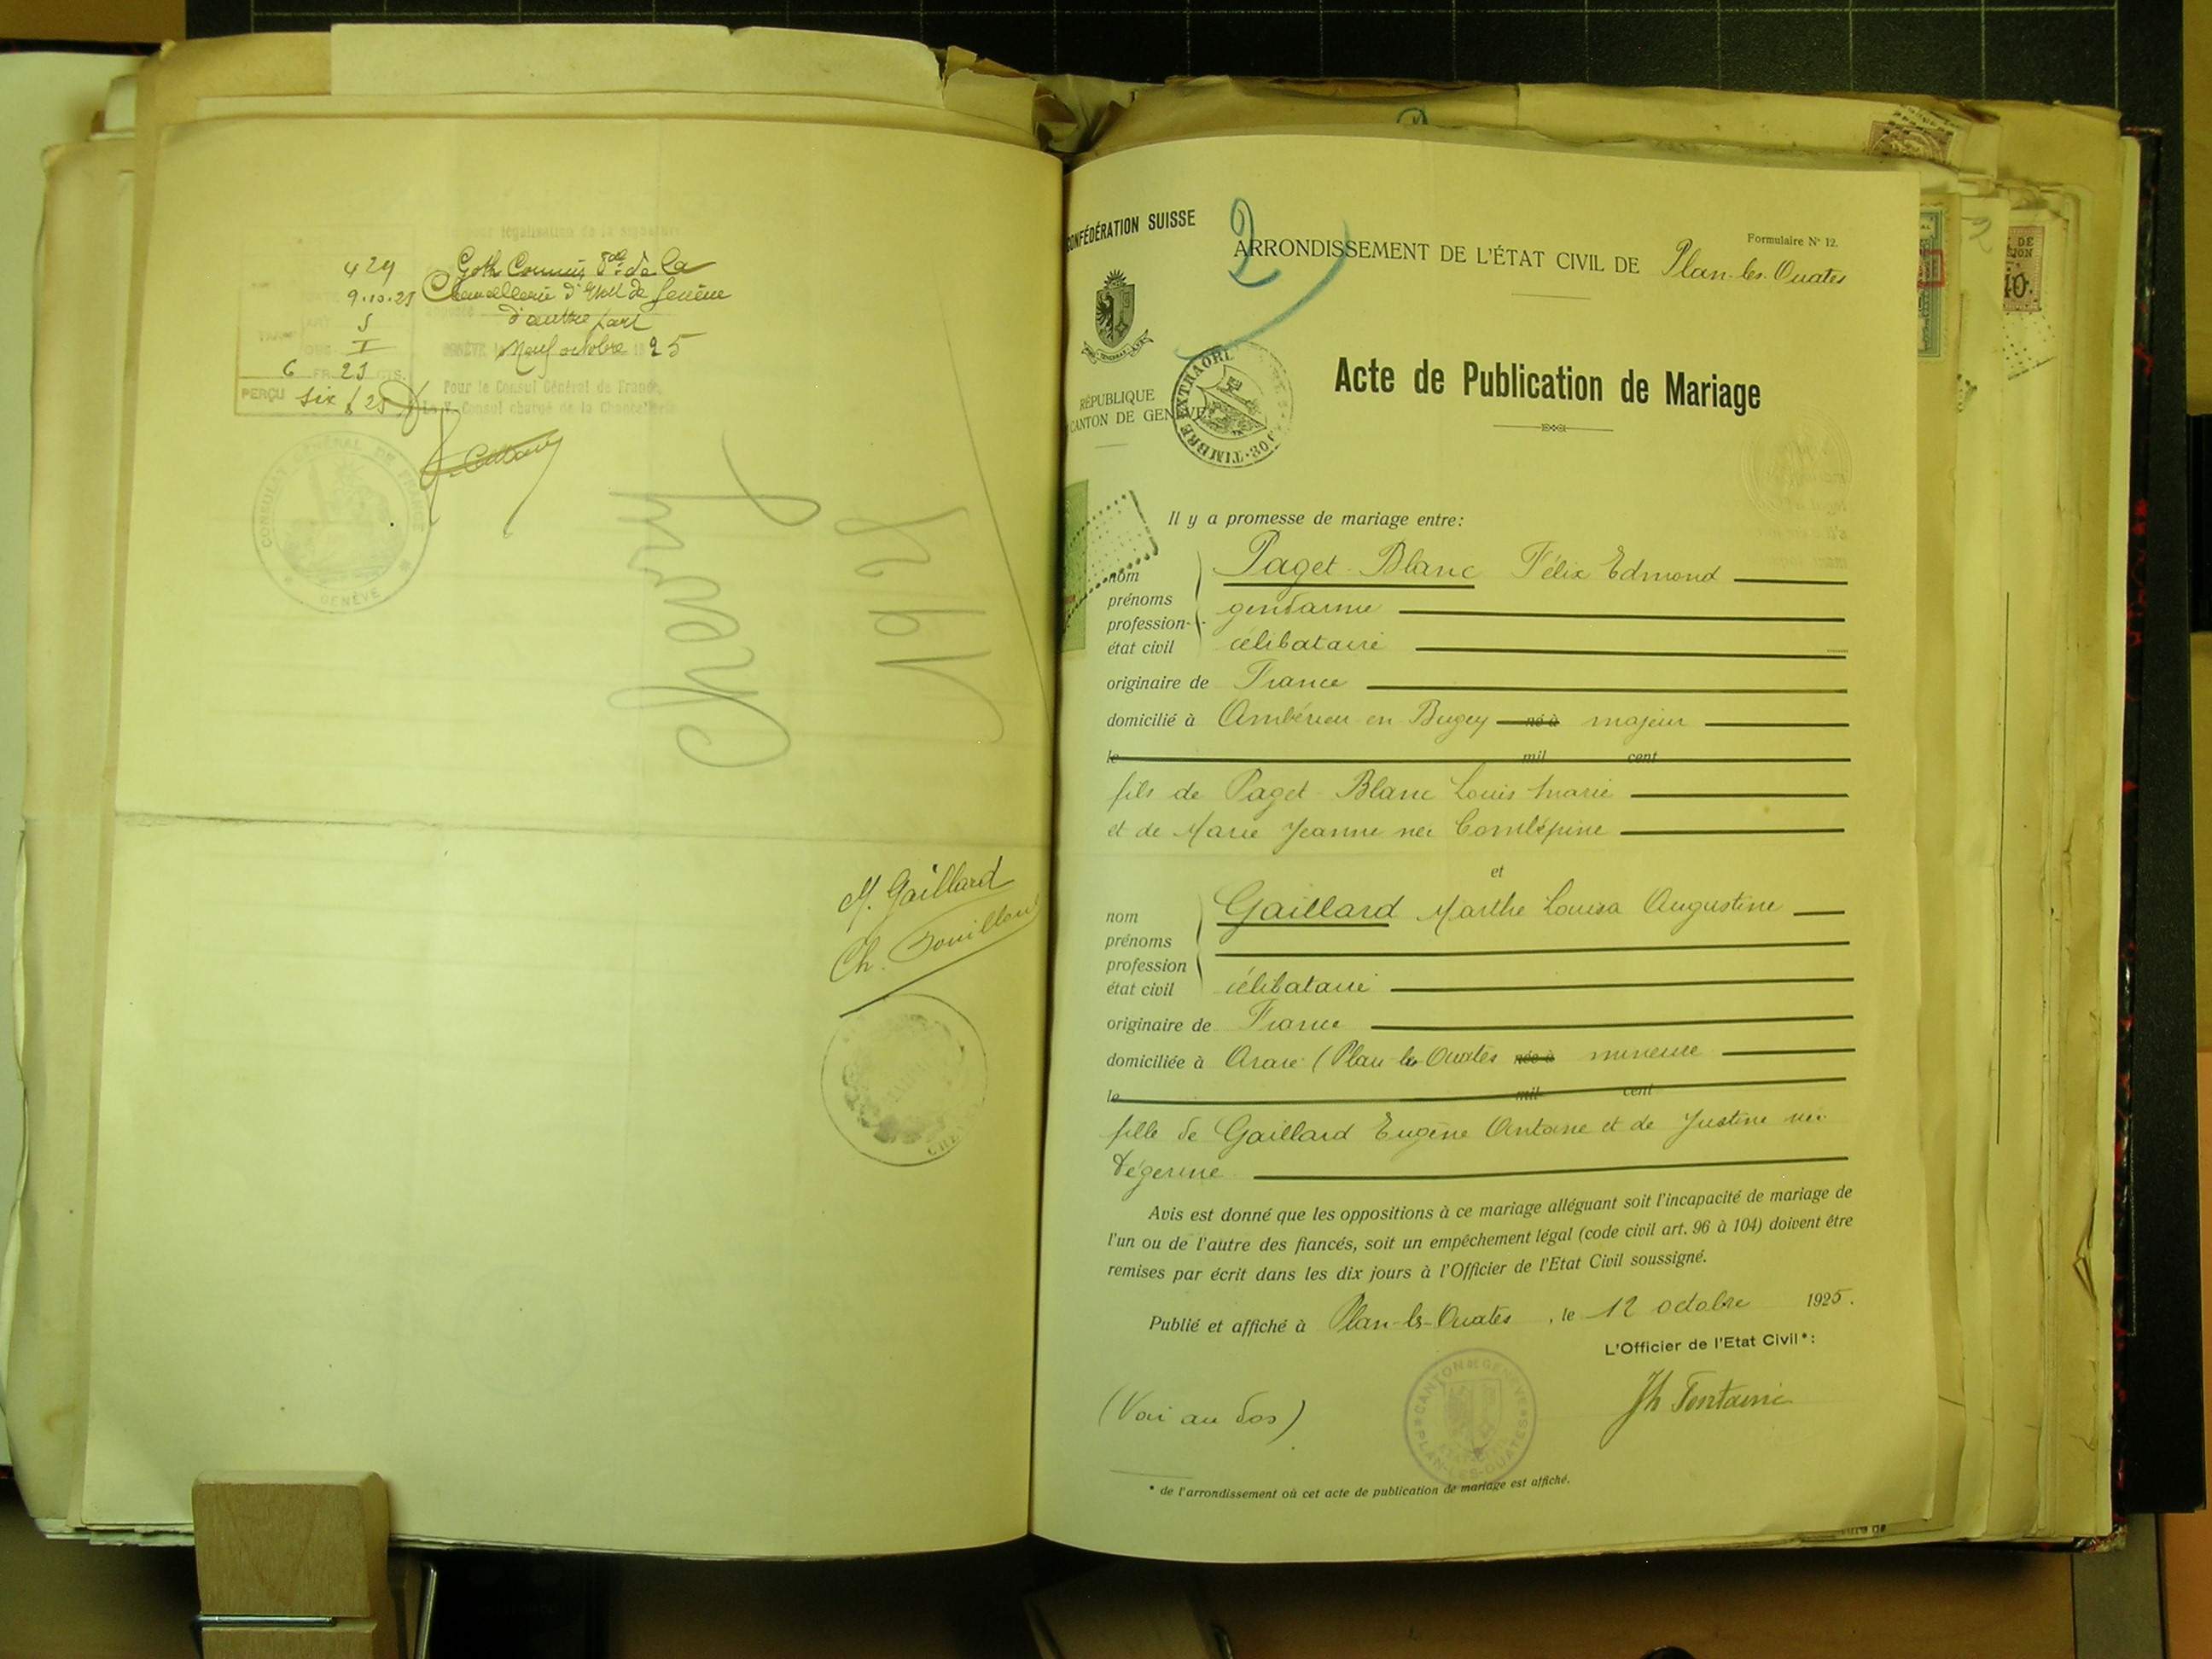 légalisation de la signature
429 Goth Commis
9.10.25 Chancellerie d'Etat de Genève
5 d'autre part
I GENÈVE neuf octobre 1925
6 FR 25 CTS.
PERÇU six f 25
Pour le Consul Général de France,
Le V. Consul chargé de la Chancellerie
CONSULAT GÉNÉRAL DE FRANCE
GENÈVE
M. Gaillard
Ch.
CONFÉDÉRATION SUISSE
2
Formulaire N° 12.
ARRONDISSEMENT DE L'ÉTAT CIVIL DE Plan-les-Ouates
RÉPUBLIQUE
CANTON DE GENÈVE
TIMBRE EXTRAOR
Acte de Publication de Mariage
Il y a promesse de mariage entre:
nom Paget-Blanc Félix Edmond
prénoms
profession gendarme
état civil célibataire
originaire de France
domicilié à Ambérieu-en-Bugey né à majeur
le mil cent
fils de Paget-Blanc Louis Marie
et de Marie Jeanne née Comlépine
et
nom Gaillard Marthe Louisa Augustine
prénoms
profession
état civil célibataire
originaire de France
domiciliée à Arare (Plan-les-Ouates née à mineure
le mil cent
fille de Gaillard Eugène Antoine et de Justine née
Dégerine
Avis est donné que les oppositions à ce mariage alléguant soit l'incapacité de mariage de
l'un ou de l'autre des fiancés, soit un empêchement légal (code civil art. 96 à 104) doivent être
remises par écrit dans les dix jours à l'Officier de l'Etat Civil soussigné.
Publié et affiché à Plan-les-Ouates, le 12 octobre 1925.
L'Officier de l'Etat Civil*:
Jh Fontaine
CANTON DE GENÈVE
PLAN-LES-OUATES
(Voir au dos)
* de l'arrondissement où cet acte de publication de mariage est affiché.